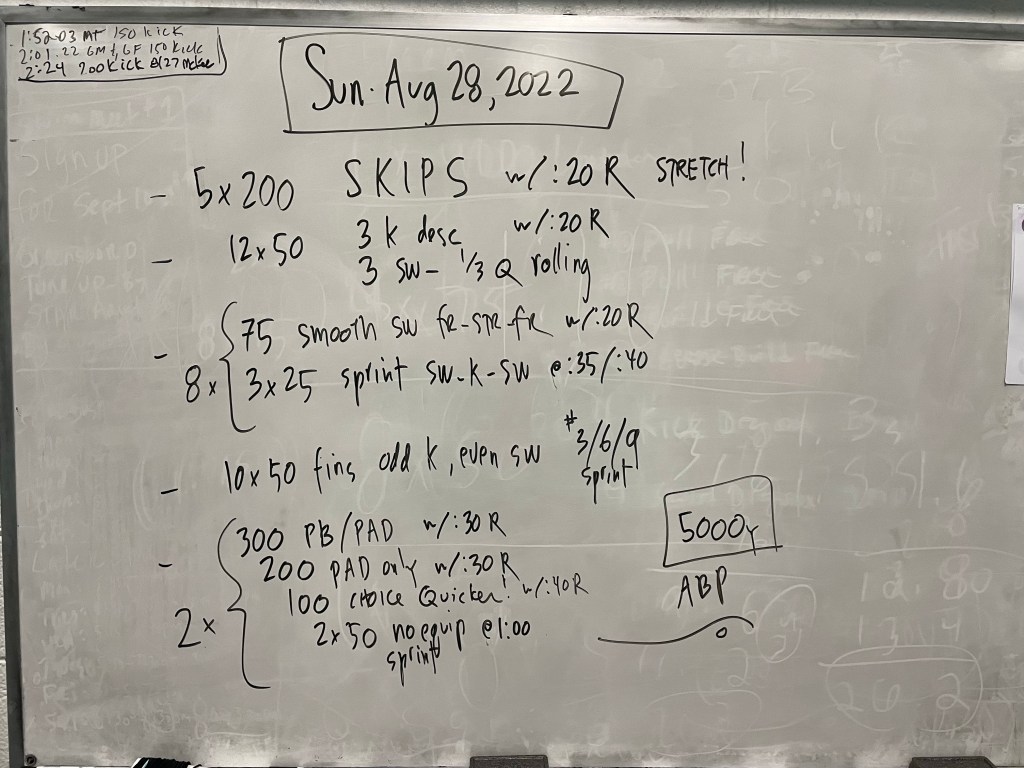 1:52.03 MT 150 kick
2:01.22 GM & GF 150 Kick
2:24 200 Kick
Sun. Aug 28, 2022
- 5x200 SKIPS w/:20 R STRETCH!
- 12x50 3 k desc w/:20 R
3 sw- 1/3 Q rolling
- 8x { 75 smooth sw fr-STR-fr w/:20 R
3x25 sprint sw-k-sw @:35/:40
- 10x50 fins odd k, even sw #3/6/9
sprint
- 2x { 300 PB/PAD w/:30 R
200 PAD only w/:30 R
100 CHOICE Quicker! w/:40 R
2x50 no equip @1:00
sprint
5000y
ABP